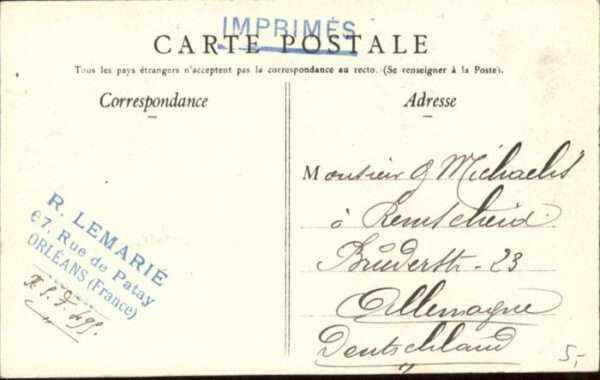 IMPRIMÉS
CARTE POSTALE
Tous les pays étrangers n'acceptent pas la correspondance au recto. (Se renseigner à la Poste).
Correspondance
Adresse
Monsieur G Michaelis
à Remscheid
Brüderstr. 23
Allemagne
Deutschland
R. LEMARIÉ
67, Rue de Patay
ORLÉANS (France)
5,-